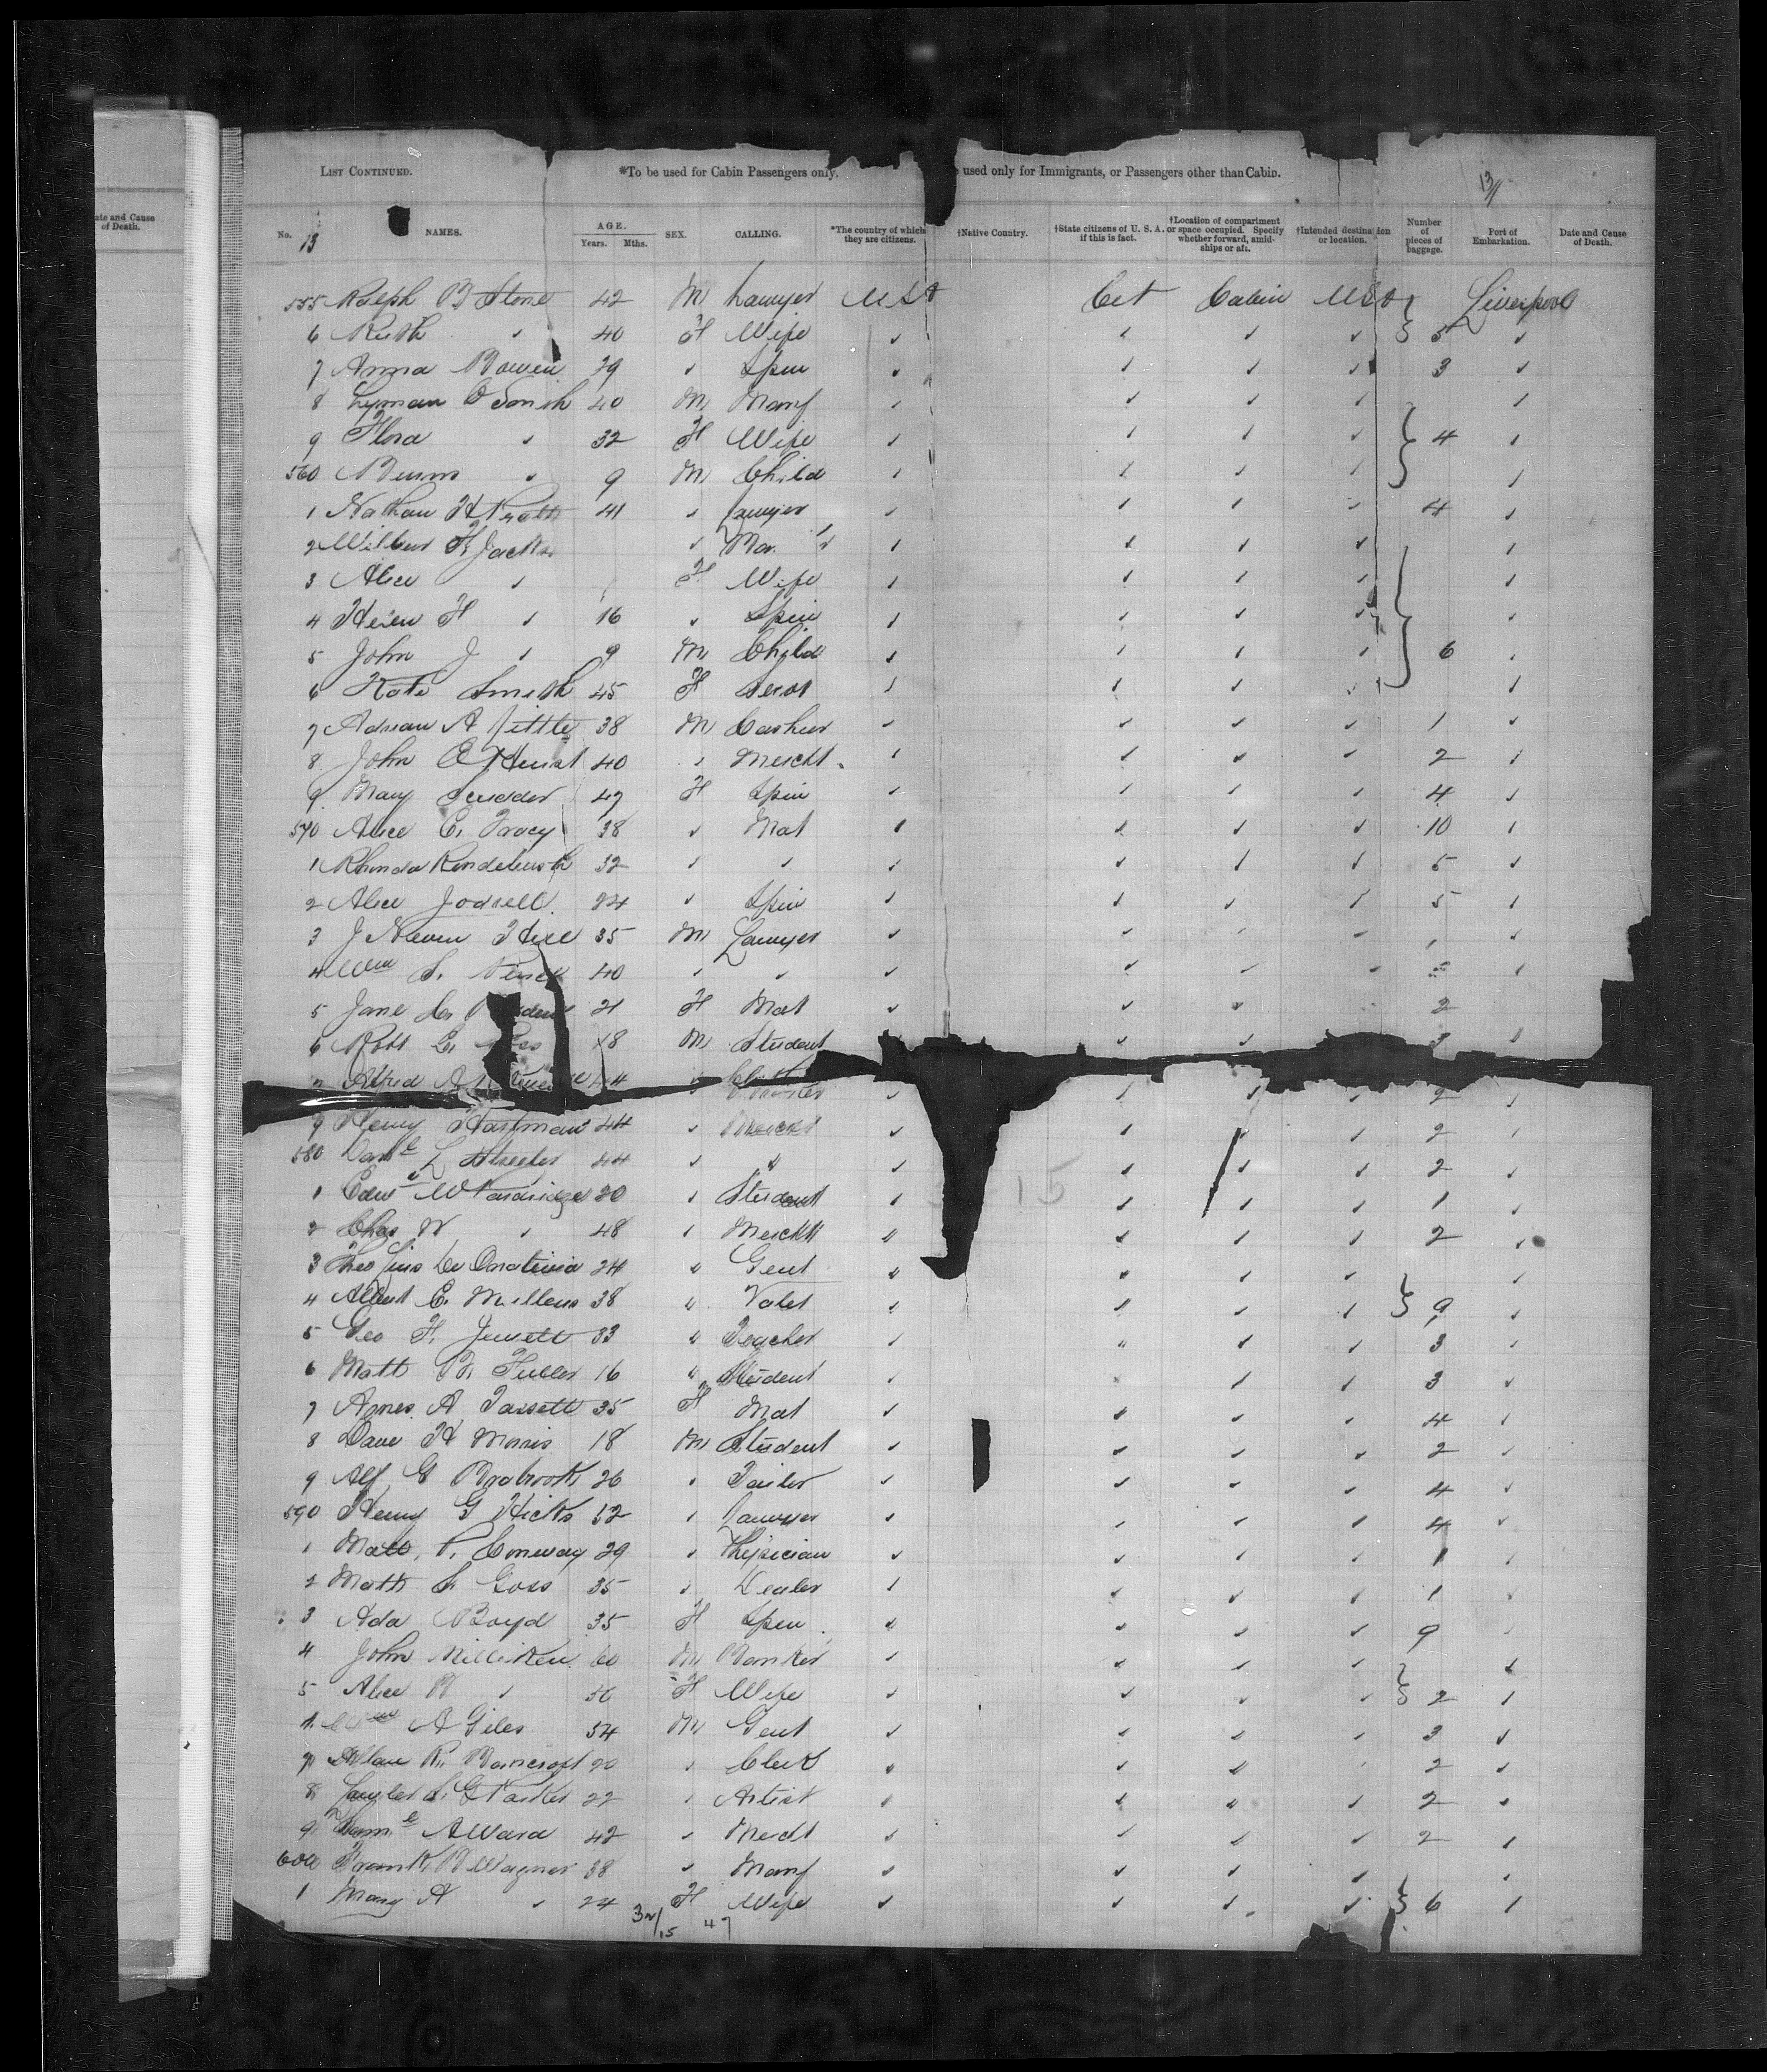 ate and Cause
of Death.
LIST CONTINUED. *To be used for Cabin Passengers only. used only for Immigrants, or Passengers other than Cabin. 13
No. 13 NAMES. AGE. Years. Mths. SEX. CALLING. *The country of which they are citizens. †Native Country. †State citizens of U. S. A. if this is fact. †Location of compartment or space occupied. Specify whether forward, amidships or aft. †Intended destination or location. Number of pieces of baggage. Port of Embarkation. Date and Cause of Death.
555 Ralph B Stone 42 M Lawyer USA Cit Cabin USA Liverpool
6 Ruth " 40 F Wife " " " " 5 "
7 Anna Bowen 29 " Spin " " " " 3 "
8 Lyman Smith 40 M Manf " " " " "
9 Flora " 32 F Wife " " " " 4 "
560 " 9 M Child " " " " "
1 Nathan H Pratt 41 " Lawyer " " " " 4 "
2 Wilbur F. " " " " " "
3 Alice " F Wife " " " " "
4 Helen F " 16 " Spin " " " " "
5 John J " 9 M Child " " " " 6 "
6 Kate Smith 45 F Servt " " " " "
7 Adrian A 38 M Cashier " " " " 1 "
8 John E Hurst 40 " Mercht. " " " " 2 "
9 Mary Scudder 47 F Spin " " " " 4 "
570 Alice C. Tracy 38 " Mat " " " " 10 "
1 32 " " " " " " 5 "
2 Alice 24 " Spin " " " " 5 "
3 J Neven 35 M Lawyer " " " " "
4 Wm S. 40 " " " " " " "
5 Jane 21 F Mat " " " 2
6 Robt 18 M Student " " 3 "
7 Alfred A 44 "
" " " " 2 "
9 Henry 44 " Mercht " " " " 2 "
580 Danl L Streeter 44 " " " " " " 2 "
1 Edwd W Pardridge 20 " Student " " " " 1 "
2 Chas W " 48 " Mercht " " " " 2 "
3 24 " Gent " " " " "
4 Albert C. Mullens 38 " Valet " " " " 9 "
5 Geo F. Jewett 33 " Teacher " " " " 3 "
6 Matt Fuller 16 " Student " " " " 3 "
7 Agnes A Tassett 35 F Mat " " " " 4 "
8 Dave H Morris 18 M Student " " " " 2 "
9 Alf G Brabrook 26 " Tailor " " " " 4 "
590 Henry G Hicks 52 " Lawyer " " " " 4 "
1 Matt. P. Conway 29 " Physician " " " " 1 "
2 Matt S. Goss 35 " Dealer " " " " 1 "
3 Ada Boyd 35 F Spin " " " " 9 "
4 John Milliken 60 M Banker " " " " "
5 Alice " F Wife " " " " 2 "
Wm A Giles 54 M Gent " " " " 3 "
7 Allan R. Bancroft 20 " Clerk " " " " 2 "
8 22 " Artist " " " " 2 "
9 Alvara 42 " Mercht " " " " 2 "
600 Frank B Wagner 38 " Manf " " " " "
1 Mary A " 24 F Wife " " " " 6 "
32/15 47